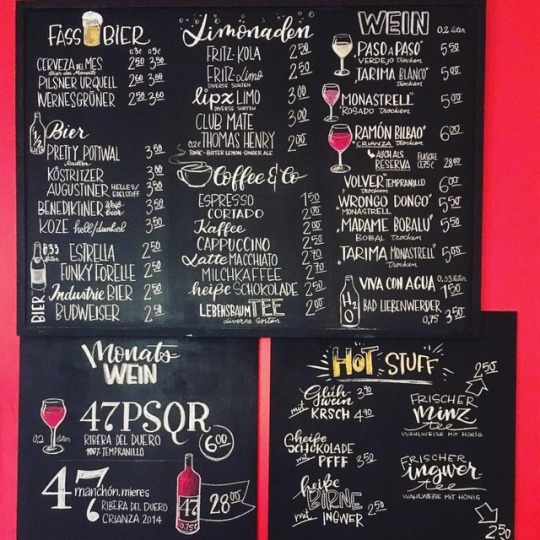 FASS BIER
0,3e 0,5e
CERVEZA DEL MES 250 360
Bier des Monats
PILSNER URQUELL 250 360
WERNESGRÜNER 250 360
1/2
Bier
PRETTY POTTWAL 350
Radler
KÖSTRITZER 350
AUGUSTINER HELLES/EDELSTOFF 350
BENEDIKTINER Weißbier 350
KOZE hell/dunkel 350
0,33 liter
BIER
ESTRELLA 250
FUNKY FORELLE 250
Industrie BIER 250
BUDWEISER 250
Limonaden
FRITZ-KOLA 250
FRITZ-Limo 250
DIVERSE SORTEN
lipz LIMO 300
DIVERSE SORTEN
CLUB MATE 300
0,2e THOMAS HENRY 200
TONIC-BITTER LEMON-GINGER ALE
Coffee & Co
ESPRESSO 150
CORTADO 200
Kaffee 200
CAPPUCCINO 250
Latte MACCHIATO 270
MILCHKAFFEE 270
heiße SCHOKOLADE 250
LEBENSBAUM TEE 200
diverse Sorten
WEIN 0,2 liter
"PASO A PASO" 550
VERDEJO trocken
"TARIMA BLANCO" 500
trocken
"MONASTRELL" 500
ROSADO trocken
"RAMÓN BILBAO" 600
CRIANZA trocken
AUCH ALS RESERVA FLASCHE 0,75e 2800
"VOLVER" TEMPRANILLO 600
trocken
"WRONGO DONGO" 550
MONASTRELL
"MADAME BOBALU" 550
BOBAL trocken
"TARIMA MONASTRELL" 500
trocken
H2O
VIVA CON AGUA 0,33 liter 150
BAD LIEBENWERDER
0,75 350
Monats-
WEIN
0,2 liter
47PSQR
RIBERA DEL DUERO
100% TEMPRANILLO
600
47
manchón.mieres
RIBERA DEL DUERO
CRIANZA 2014
47
0,75e
2800
HOT STUFF
Glühwein 390
mit KRSCH 490
heiße
SCHOKOLADE
mit PFFF 350
heiße
BIRNE
mit INGWER 250
250
FRISCHER
minz
tee
WAHLWEISE MIT HONIG
FRISCHER
ingwer-
tee
WAHLWEISE MIT HONIG
250